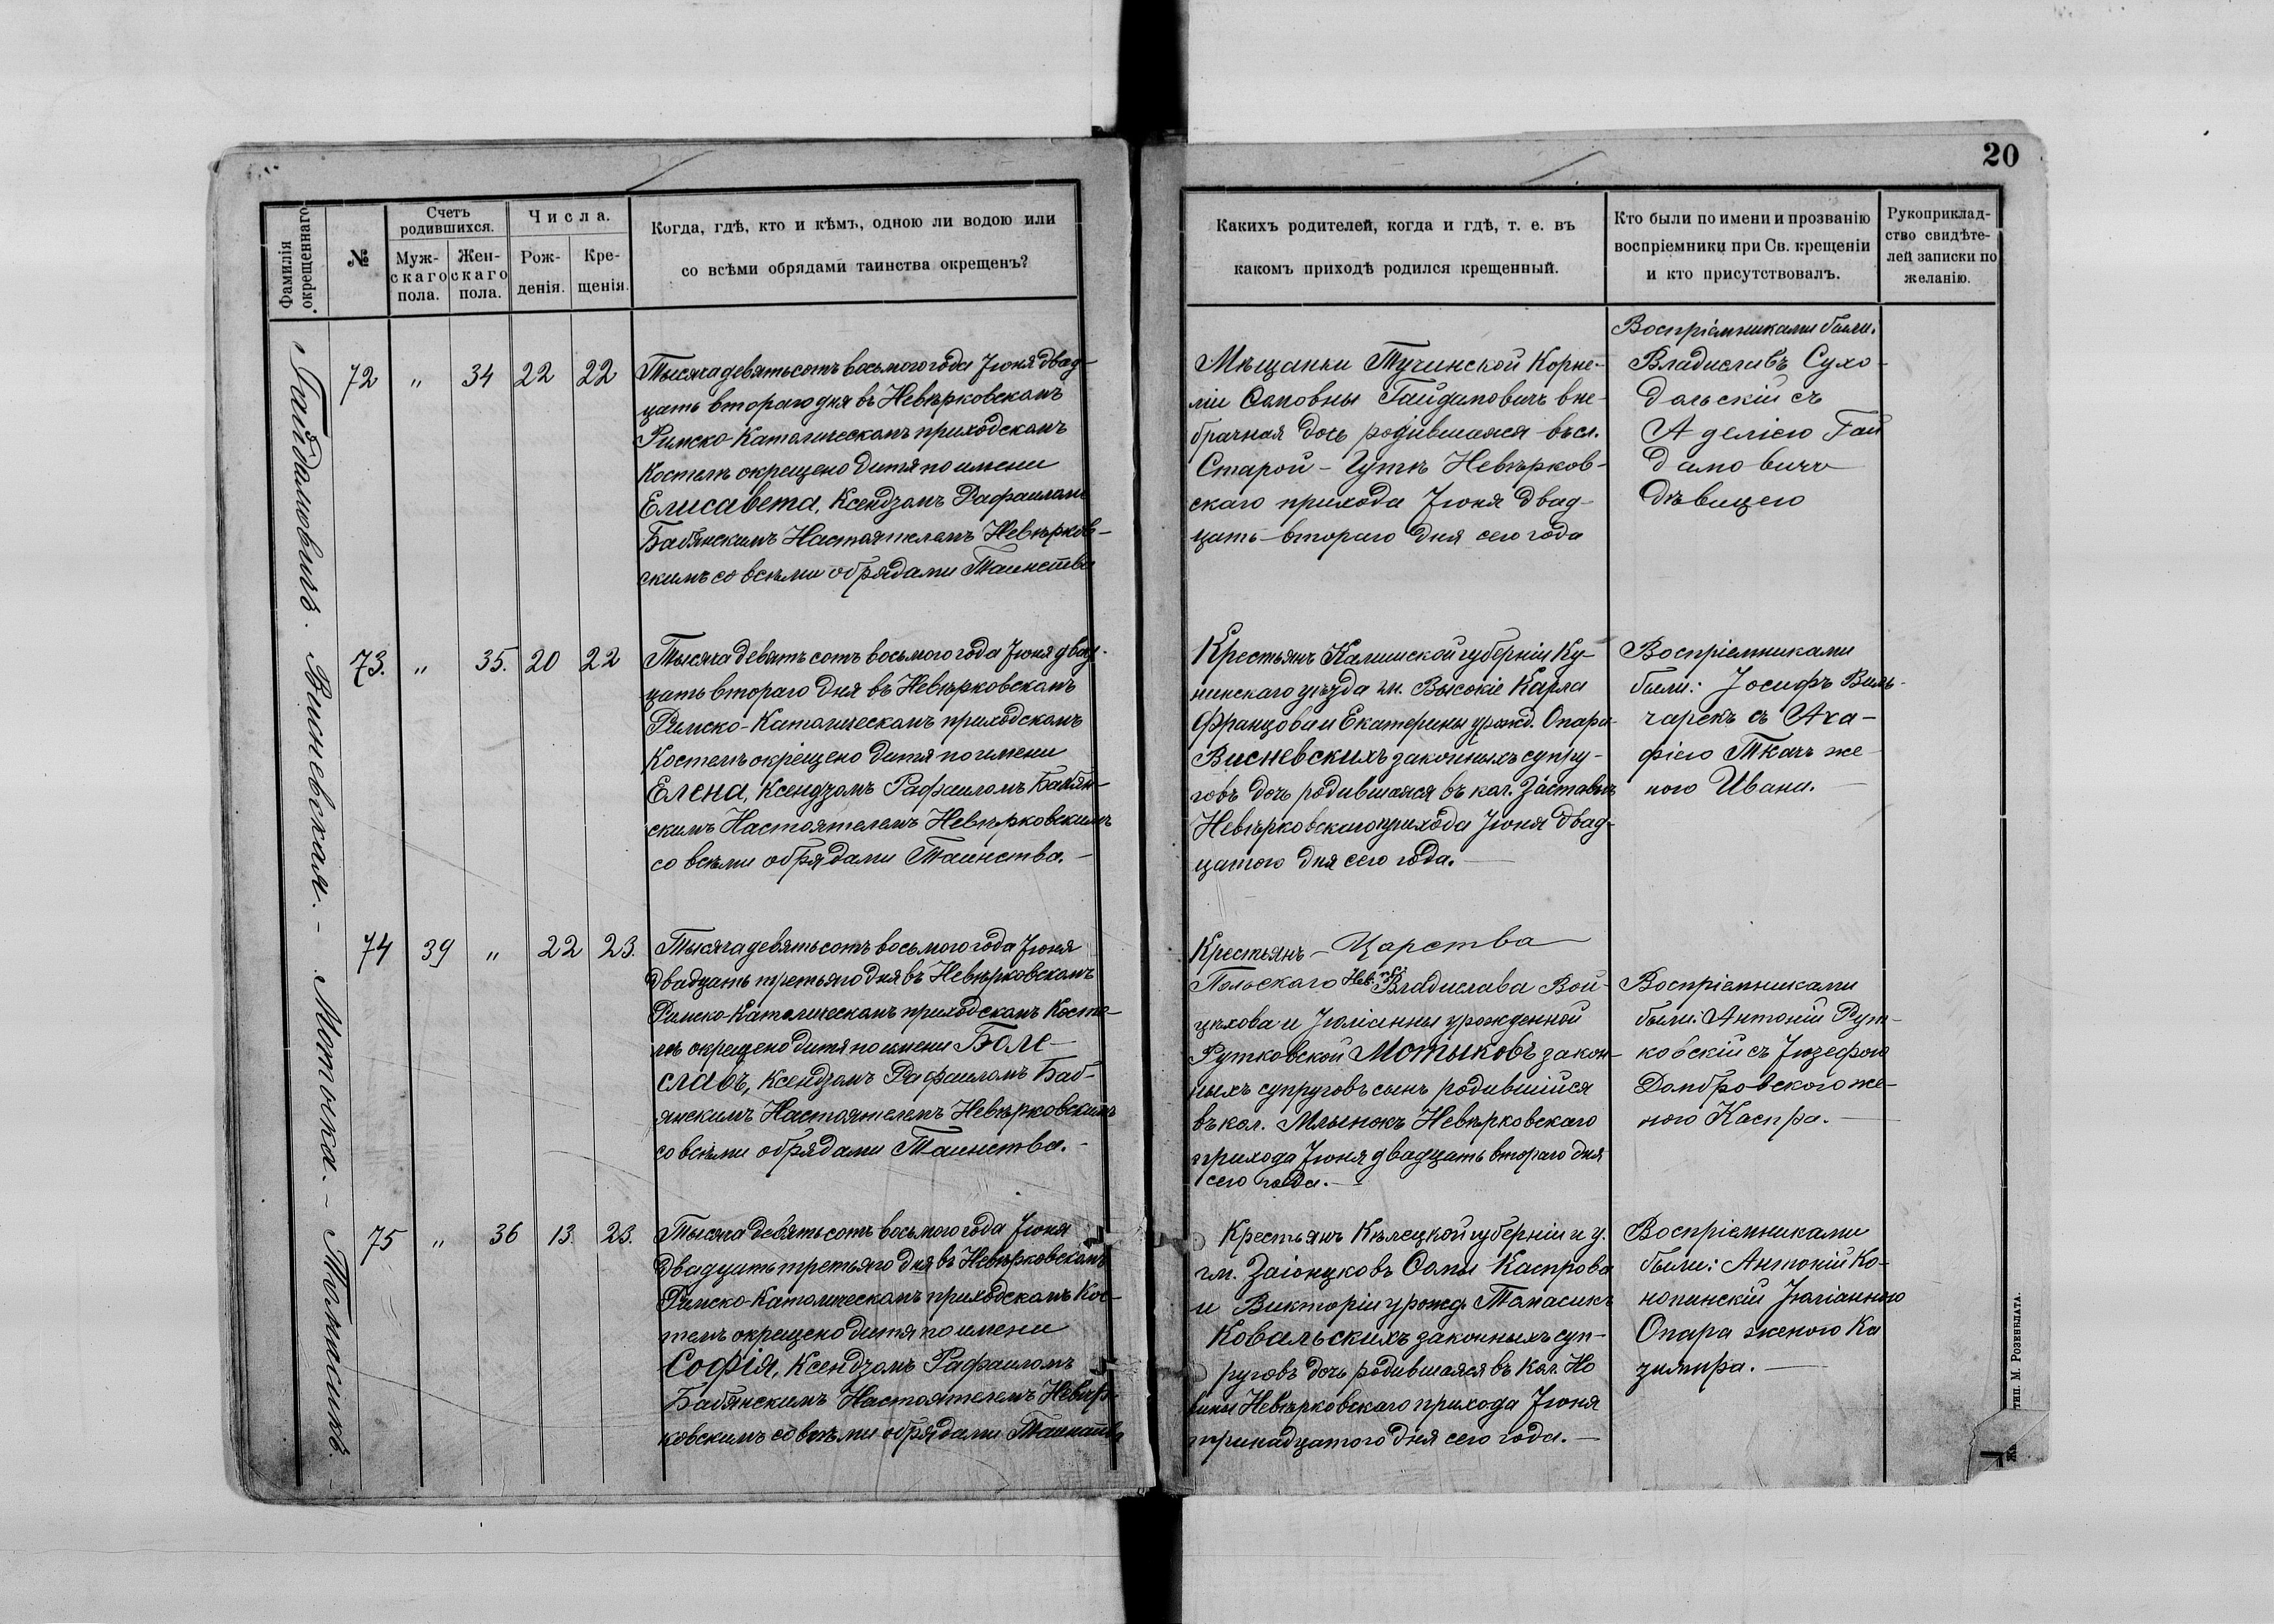 20
Фамилія окрещеннаго.
№
Счетъ родившихся.
Муж-скаго пола.
Жен-скаго пола.
Числа.
Рож-денія.
Кре-щенія.
Когда, гдѣ, кто и кѣмъ, одною ли водою или
со всѣми обрядами таинства окрещенъ?
Какихъ родителей, когда и гдѣ, т. е. въ
какомъ приходѣ родился крещенный.
Кто были по имени и прозванію
воспріемники при Св. крещеніи
и кто присутствовалъ.
Рукоприклад-
ство свидѣте-
лей записки по
желанію.
Гайдамовичъ.
72 " 34 22 22
Тысяча девятьсотъ восьмого года Іюня двад-
цать второго дня въ Невѣрковскомъ
Римско-Католическомъ приходскомъ
Костелѣ окрещено дитя по имени
Елисавета, Ксендзомъ Рафаиломъ
Бабянскимъ Настоятелемъ Невѣрков-
скимъ со всѣми обрядами Таинства
Мѣщанки Тучинской Корне-
ліи Осиповны Гайдамовичъ вне-
брачная дочь родившаяся въ сл.
Старой-Гутѣ Невѣрков-
скаго прихода Іюня двад-
цать-второго дня сего года
Воспріемниками были:
Владиславъ Сухо-
дольскій съ
Аделіею Гай
дамовичъ
дѣвицею
Висневская.-
73. " 35. 20 22
Тысяча девятьсотъ восьмого года Іюня двад-
цать второго дня въ Невѣрковскомъ
Римско-Католическомъ приходскомъ
Костелѣ окрещено дитя по имени
Елена, Ксендзомъ Рафаиломъ Бабян-
скимъ Настоятелемъ Невѣрковскимъ
со всѣми обрядами Таинства.-
Крестьянъ Калишской губерніи Ку-
нинскаго уѣзда гм. Высокіе Карла
Францова и Екатерины урожд. Опара
Висневскихъ законныхъ супру-
говъ дочь родившаяся въ кол. Заставье
Невѣрковскаго прихода Іюня двад-
цатого дня сего года.-
Воспріемниками
были: Іосифъ Виль-
чарекъ съ Ага-
фіею Ткачъ же
ною Ивана.-
Мотыка.-
74 39 " 22 23.
Тысяча девятьсотъ восьмого года Іюня
двадцать третьяго дня въ Невѣрковскомъ
Римско-Католическомъ приходскомъ Косте-
лѣ окрещено дитя по имени Боле-
славъ, Ксендзомъ Рафаиломъ Баб-
янскимъ Настоятелемъ Невѣрковскимъ
со всѣми обрядами Таинства.-
Крестьянъ - Царства
Польскаго Владислава Вой-
цѣхова и Юліанны урожденной
Рутковской Мотыковъ закон-
ныхъ супруговъ сынъ родившійся
въ кол. Млынокъ Невѣрковскаго
прихода Іюня двадцать второго дня
сего года.-
Воспріемниками
были: Антоній Рут-
ковскій съ Іюзефою
Домбровского же-
ною Каспра.-
Томасикъ.-
75 " 36 13. 23.
Тысяча девятьсотъ восьмого года Іюня
двадцать третьяго дня въ Невѣрковскомъ
Римско-Католическомъ приходскомъ Кос-
телѣ окрещено дитя по имени
Софія, Ксендзомъ Рафаиломъ
Бабянскимъ Настоятелемъ Невѣр-
ковскимъ со всѣми обрядами Таинства
Крестьянъ Кѣлецкой губерніи и у.
гм. Заіонцковъ Сомы Каспрова
и Викторіи урожд. Томасикъ
Ковальскихъ законныхъ суп-
руговъ дочь родившаяся въ кол. Но
вины Невѣрковскаго прихода Іюня
тринадцатого дня сего года.-
Воспріемниками
были: Антоній Ко-
нопинскій Юліанною
Опара женою Ка
зимира.-
тип. М. Розенблата.